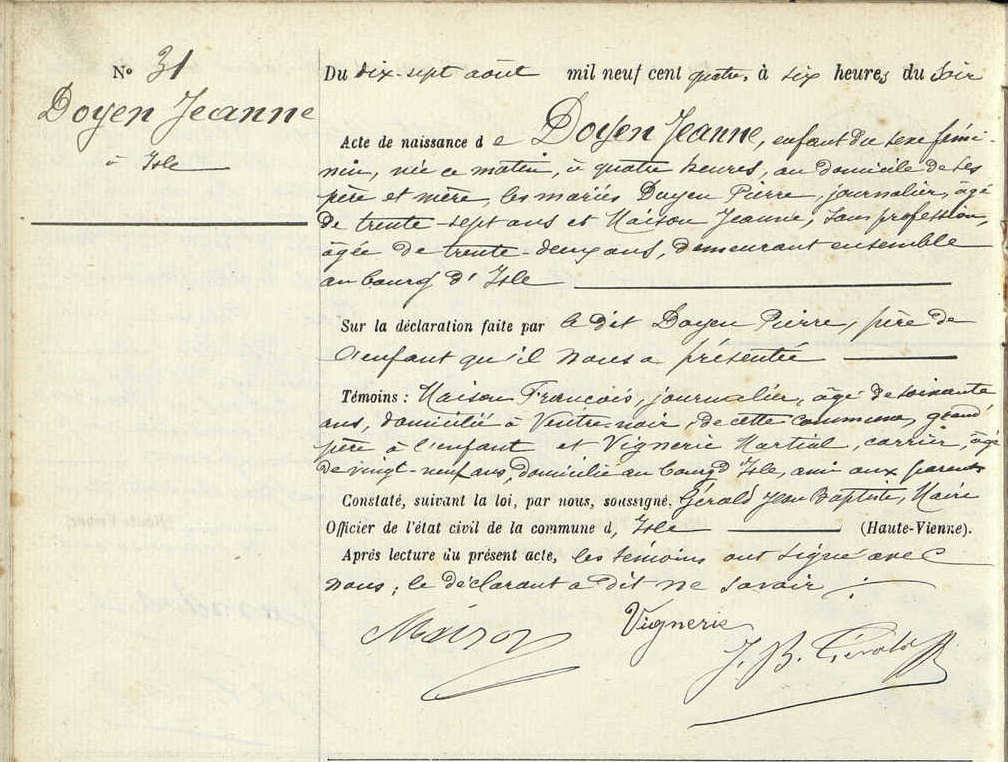 N° 31
Doyen Jeanne
à Isle
Du dix-sept août mil neuf cent quatre, à six heures du soir
Acte de naissance de Doyen Jeanne, enfant du sexe fémi-
nin, née ce matin, à quatre heures, au domicile de ses
père et mère, les mariés Doyen Pierre, journalier, âgé
de trente-sept ans et Maison Jeanne, sans profession,
âgée de trente-deux ans, demeurant ensemble
au bourg d'Isle
Sur la déclaration faite par le dit Doyen Pierre, père de
l'enfant qu'il nous a présentée
Témoins : Maison François, journalier, âgé de soixante
ans, domicilié à Ventre-noir, de cette commune, grand
père à l'enfant et Vignerie Martial, carrier, âgé
de vingt-neuf ans, domicilié au bourg d'Isle, ami aux parents
Constaté, suivant la loi, par nous, soussigné, Gérald Jean Baptiste, Maire
Officier de l'état civil de la commune d, Isle (Haute-Vienne).
Après lecture du présent acte, les témoins ont signé avec
nous ; le déclarant a dit ne savoir
Maison Vignerie
J. B. Gérald